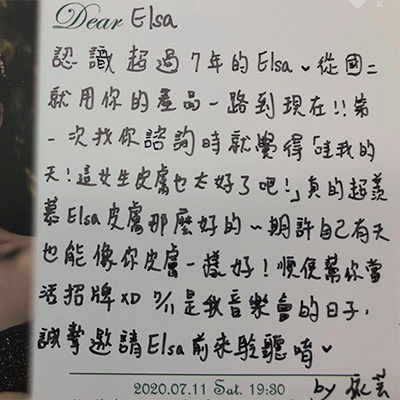 Dear Elsa
認識超過7年的Elsa、從國二
就用你的產品一路到現在!!第
一次找你諮詢時就覺得「哇我的
天!這女生皮膚也太好了吧!」真的超羨
慕Elsa皮膚那麼好的~期許自己有天
也能像你皮膚一樣好!順便幫你當
活招牌XD 7/11是我音樂會的日子,
誠摯邀請Elsa前來聆聽唷
2020.07.11 Sat. 19:30
by